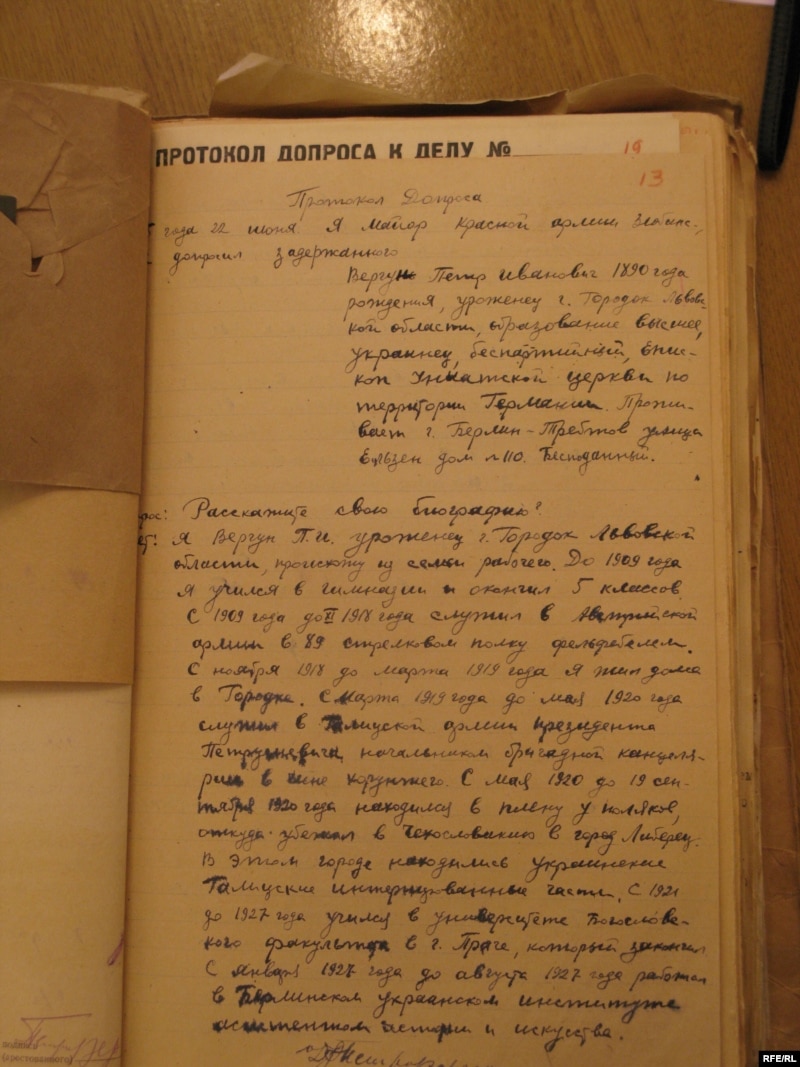 ПРОТОКОЛ ДОПРОСА К ДЕЛУ №
19
13
Протокол Допроса
года 22 июня Я Майор Красной армии
допросил задержанного
Вергун Петр Иванович 1890 года
рождения, уроженец г. Городок Львов-
кой области, образование высшее,
украинец, беспартийный, Епис-
коп Униатской церкви по
территории Германии. Прожи-
вает г. Берлин-Трептов улица
дом №110. Бесподанный.
рос: Расскажите свою биографию?
ет: Я Вергун П.И. уроженец г. Городок Львовской
области, происхожу из семьи рабочего. До 1909 года
я учился в гимназии и окончил 5 классов.
С 1909 года до XI 1918 года служил в Австрийской
армии в 89 стрелковом полку фельфебелем.
С ноября 1918 до марта 1919 года я жил дома
в Городке. С марта 1919 года до мая 1920 года
служил в Галицкой армии президента
Петрушевича, начальником бригадной канцеля-
рии в чине корунжего. С мая 1920 до 19 сен-
тября 1920 года находился в плену у поляков,
откуда убежал в Чехословакию в город Либерец.
В этом городе находились украинские
Галицкие интернированные части. С 1921
до 1927 года учился в университете Богословс-
кого факультета в г. Праге, который закончил
С января 1927 года до августа 1927 года работал
в Берлинском украанском институте
асистентом истории и искусства.
подпись
(арестованного)
RFE/RL